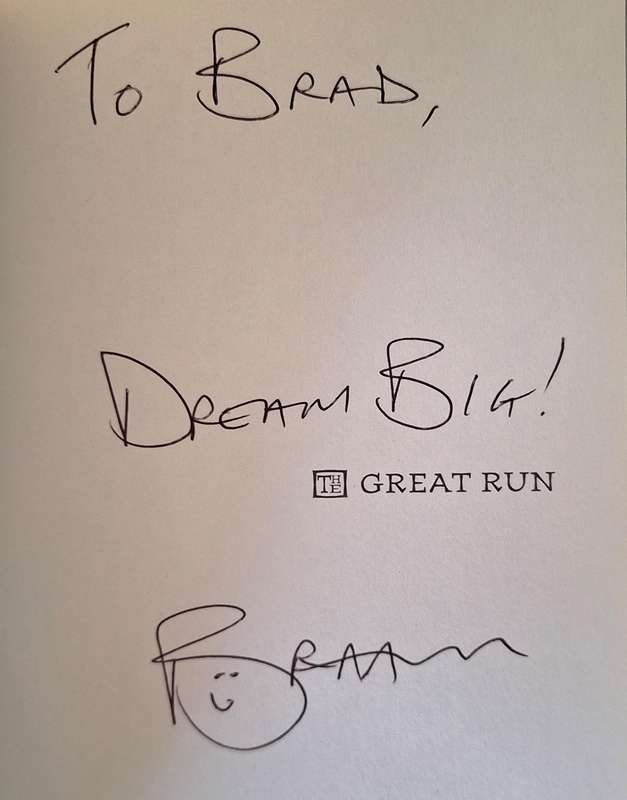 To BRAD,
DREAM BIG!
THE GREAT RUN
BRAAM